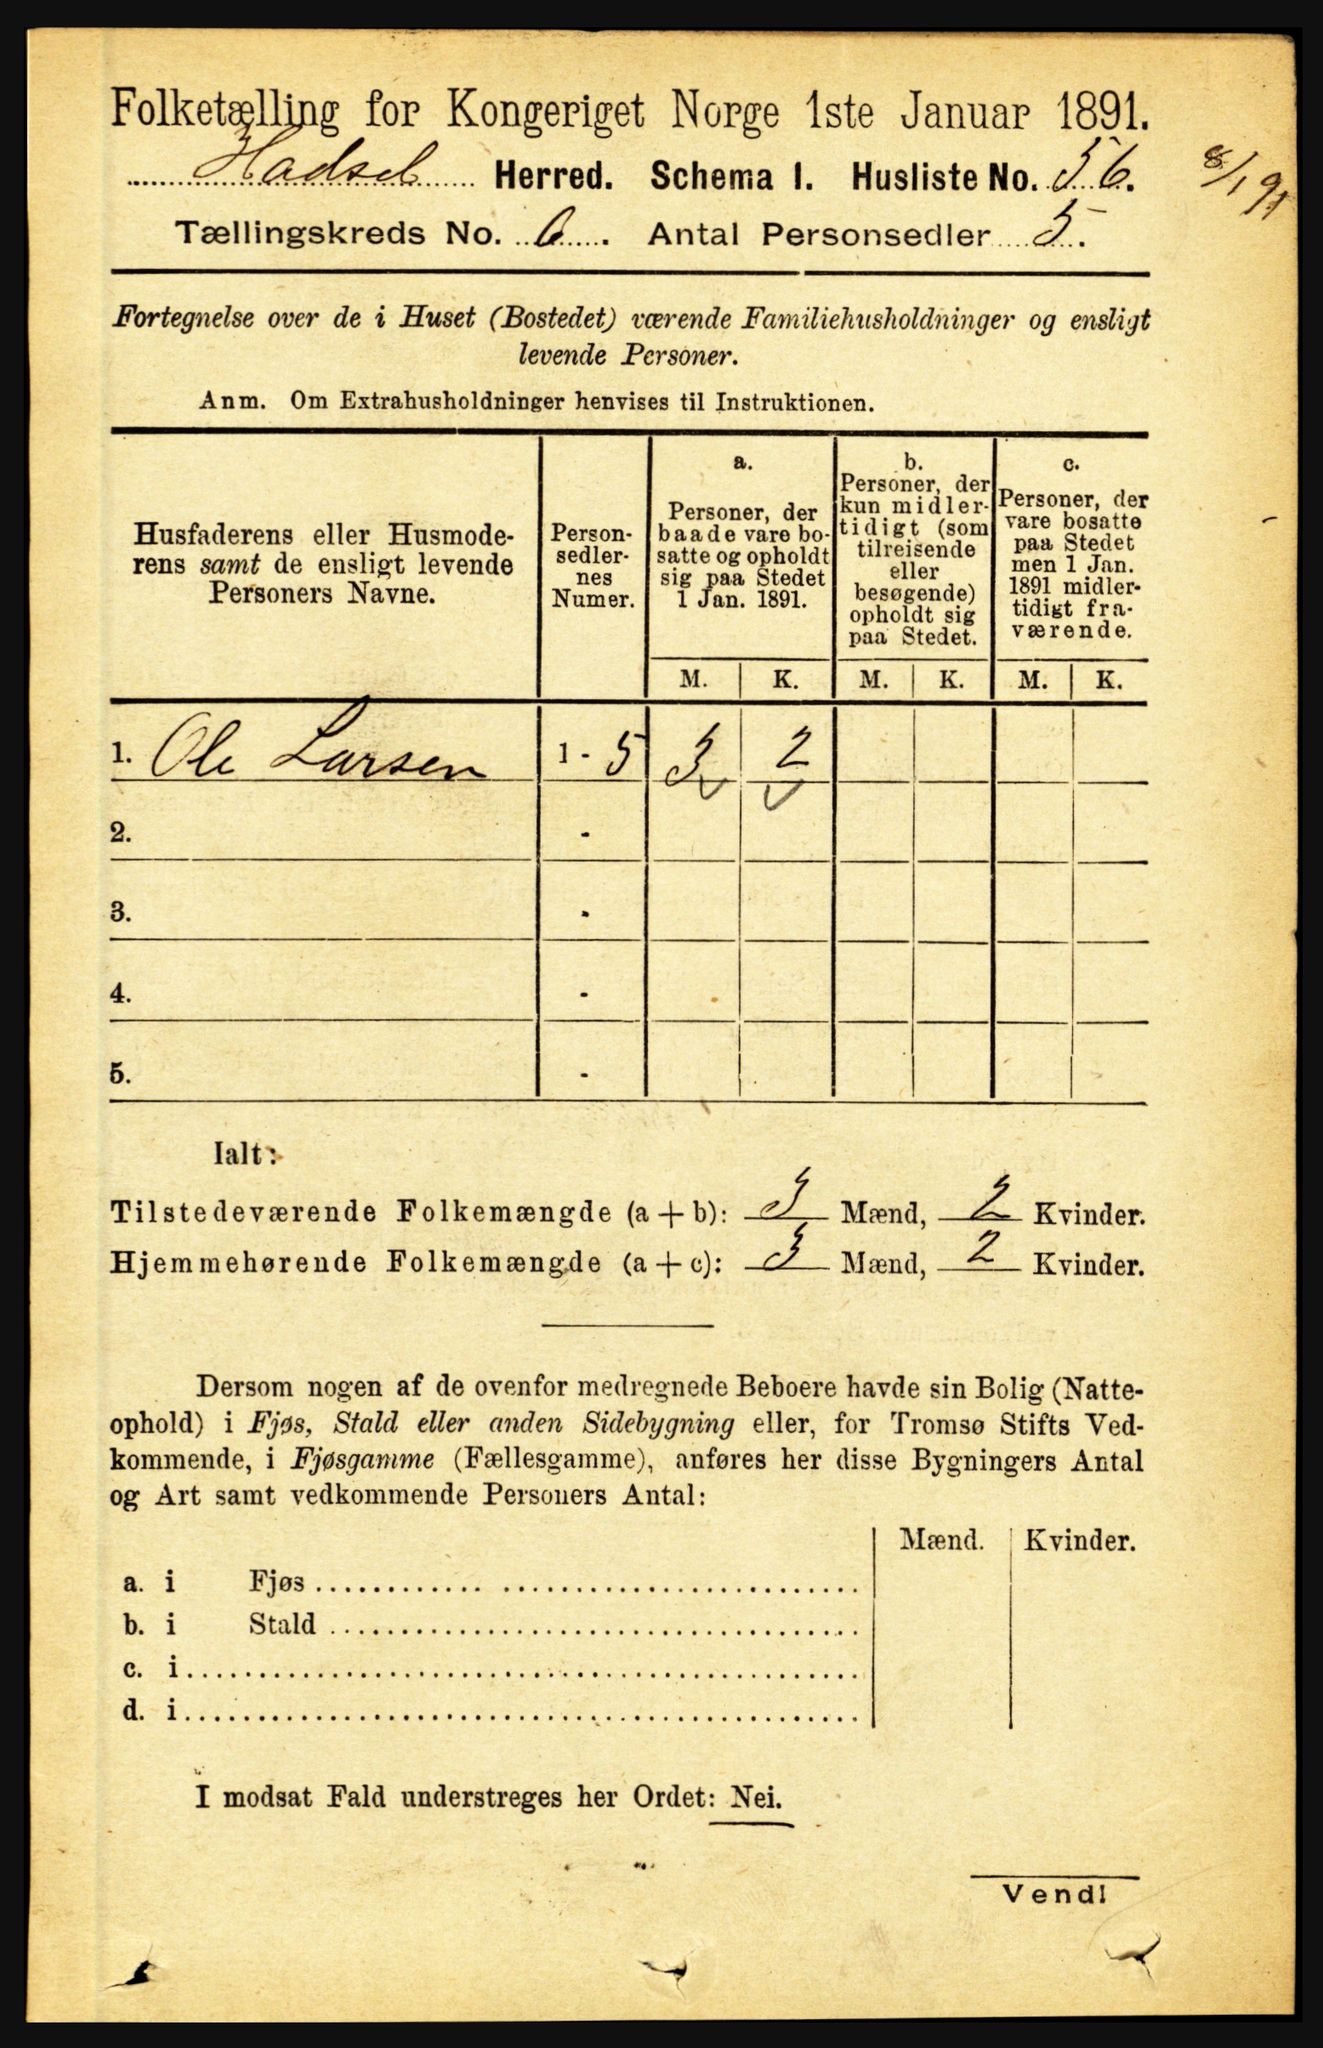 Folketælling for Kongeriget Norge 1ste Januar 1891.
Hadsel Herred. Schema 1. Husliste No. 56.
8/1 91
Tællingskreds No. 6. Antal Personsedler 5.
Fortegnelse over de i Huset (Bostedet) værende Familiehusholdninger og ensligt
levende Personer.
Anm. Om Extrahusholdninger henvises til Instruktionen.
Husfaderens eller Husmode-
rens samt de ensligt levende
Personers Navne.
Person-
sedler-
nes
Numer.
a.
Personer, der
baade vare bo-
satte og opholdt
sig paa Stedet
1 Jan. 1891.
b.
Personer, der
kun midler-
tidigt (som
tilreisende
eller
besøgende)
opholdt sig
paa Stedet.
c.
Personer, der
vare bosatte
paa Stedet
men 1 Jan.
1891 midler-
tidigt fra-
værende.
M. K. M. K. M. K.
1. Ole Larsen 1 - 5 3 2
2. -
3. -
4. -
5. -
Ialt:
Tilstedeværende Folkemængde (a + b): 3 Mænd, 2 Kvinder.
Hjemmehørende Folkemængde (a + c): 3 Mænd, 2 Kvinder.
Dersom nogen af de ovenfor medregnede Beboere havde sin Bolig (Natte-
ophold) i Fjøs, Stald eller anden Sidebygning eller, for Tromsø Stifts Ved-
kommende, i Fjøsgamme (Fællesgamme), anføres her disse Bygningers Antal
og Art samt vedkommende Personers Antal:
Mænd. Kvinder.
a. i Fjøs
b. i Stald
c. i
d. i
I modsat Fald understreges her Ordet: Nei.
Vend!